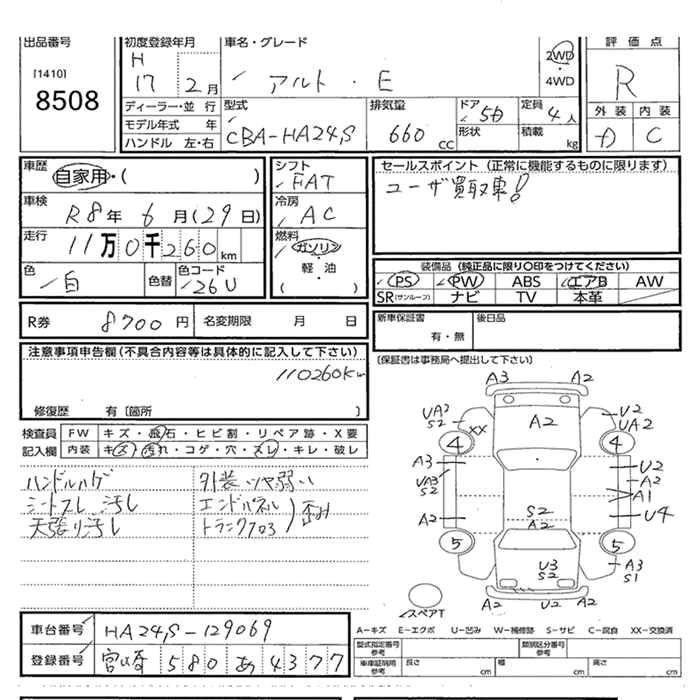 出品番号
[1410]
8508
初度登録年月
H
17 2月
車名・グレード
アルト・E
2WD
・
4WD
評価点
R
外装 内装
D C
ディーラー・並行
モデル年式 年
ハンドル 左・右
型式
CBA-HA24S
排気量
660 cc
ドア 5D
形状
定員 4人
積載 kg
車歴
自家用・( )
車検
R8年 6月(29日)
走行
11万0千260km
色
白
色替
色コード
26U
シフト
FAT
冷房
AC
燃料
ガソリン
・
軽・油
( )
セールスポイント (正常に機能するものに限ります)
ユーザ買取車!
装備品 (純正品に限り○印をつけてください)
PS PW ABS エアB AW
SR(サンルーフ) ナビ TV 本革
R券 8700円 名変期限 月 日
新車保証書
有・無
後日品
(保証書は事務局へ提出して下さい)
注意事項申告欄(不具合内容等は具体的に記入して下さい)
110260Km
修復歴 有〔箇所 〕
検査員
記入欄
FW キズ・飛石・ヒビ割・リペア跡・X要
内装 キズ・汚れ・コゲ・穴・スレ・キレ・破レ
ハンドルハゲ
シートスレ 汚レ
天張り汚レ
外装ツヤ弱い
エンドパネル
トランクフロア
歪み
A3 A2
UA2
S2
XX
A2
U2
UA2
4 4
A3
UA3
S2
A2
U2
A2
A1
U4
S2
A2
5 5
U3
S2
A3
S1
A2 U2 A2
スペアT
A-キズ E-エクボ U-凹み W-補修跡 S-サビ C-腐食 XX-交換済
車台番号 HA24S-129069
登録番号 宮崎 580 あ 4377
型式指定番号
参考
類別区分番号
参考
車庫証明用
参考
長さ cm 幅 cm 高さ cm